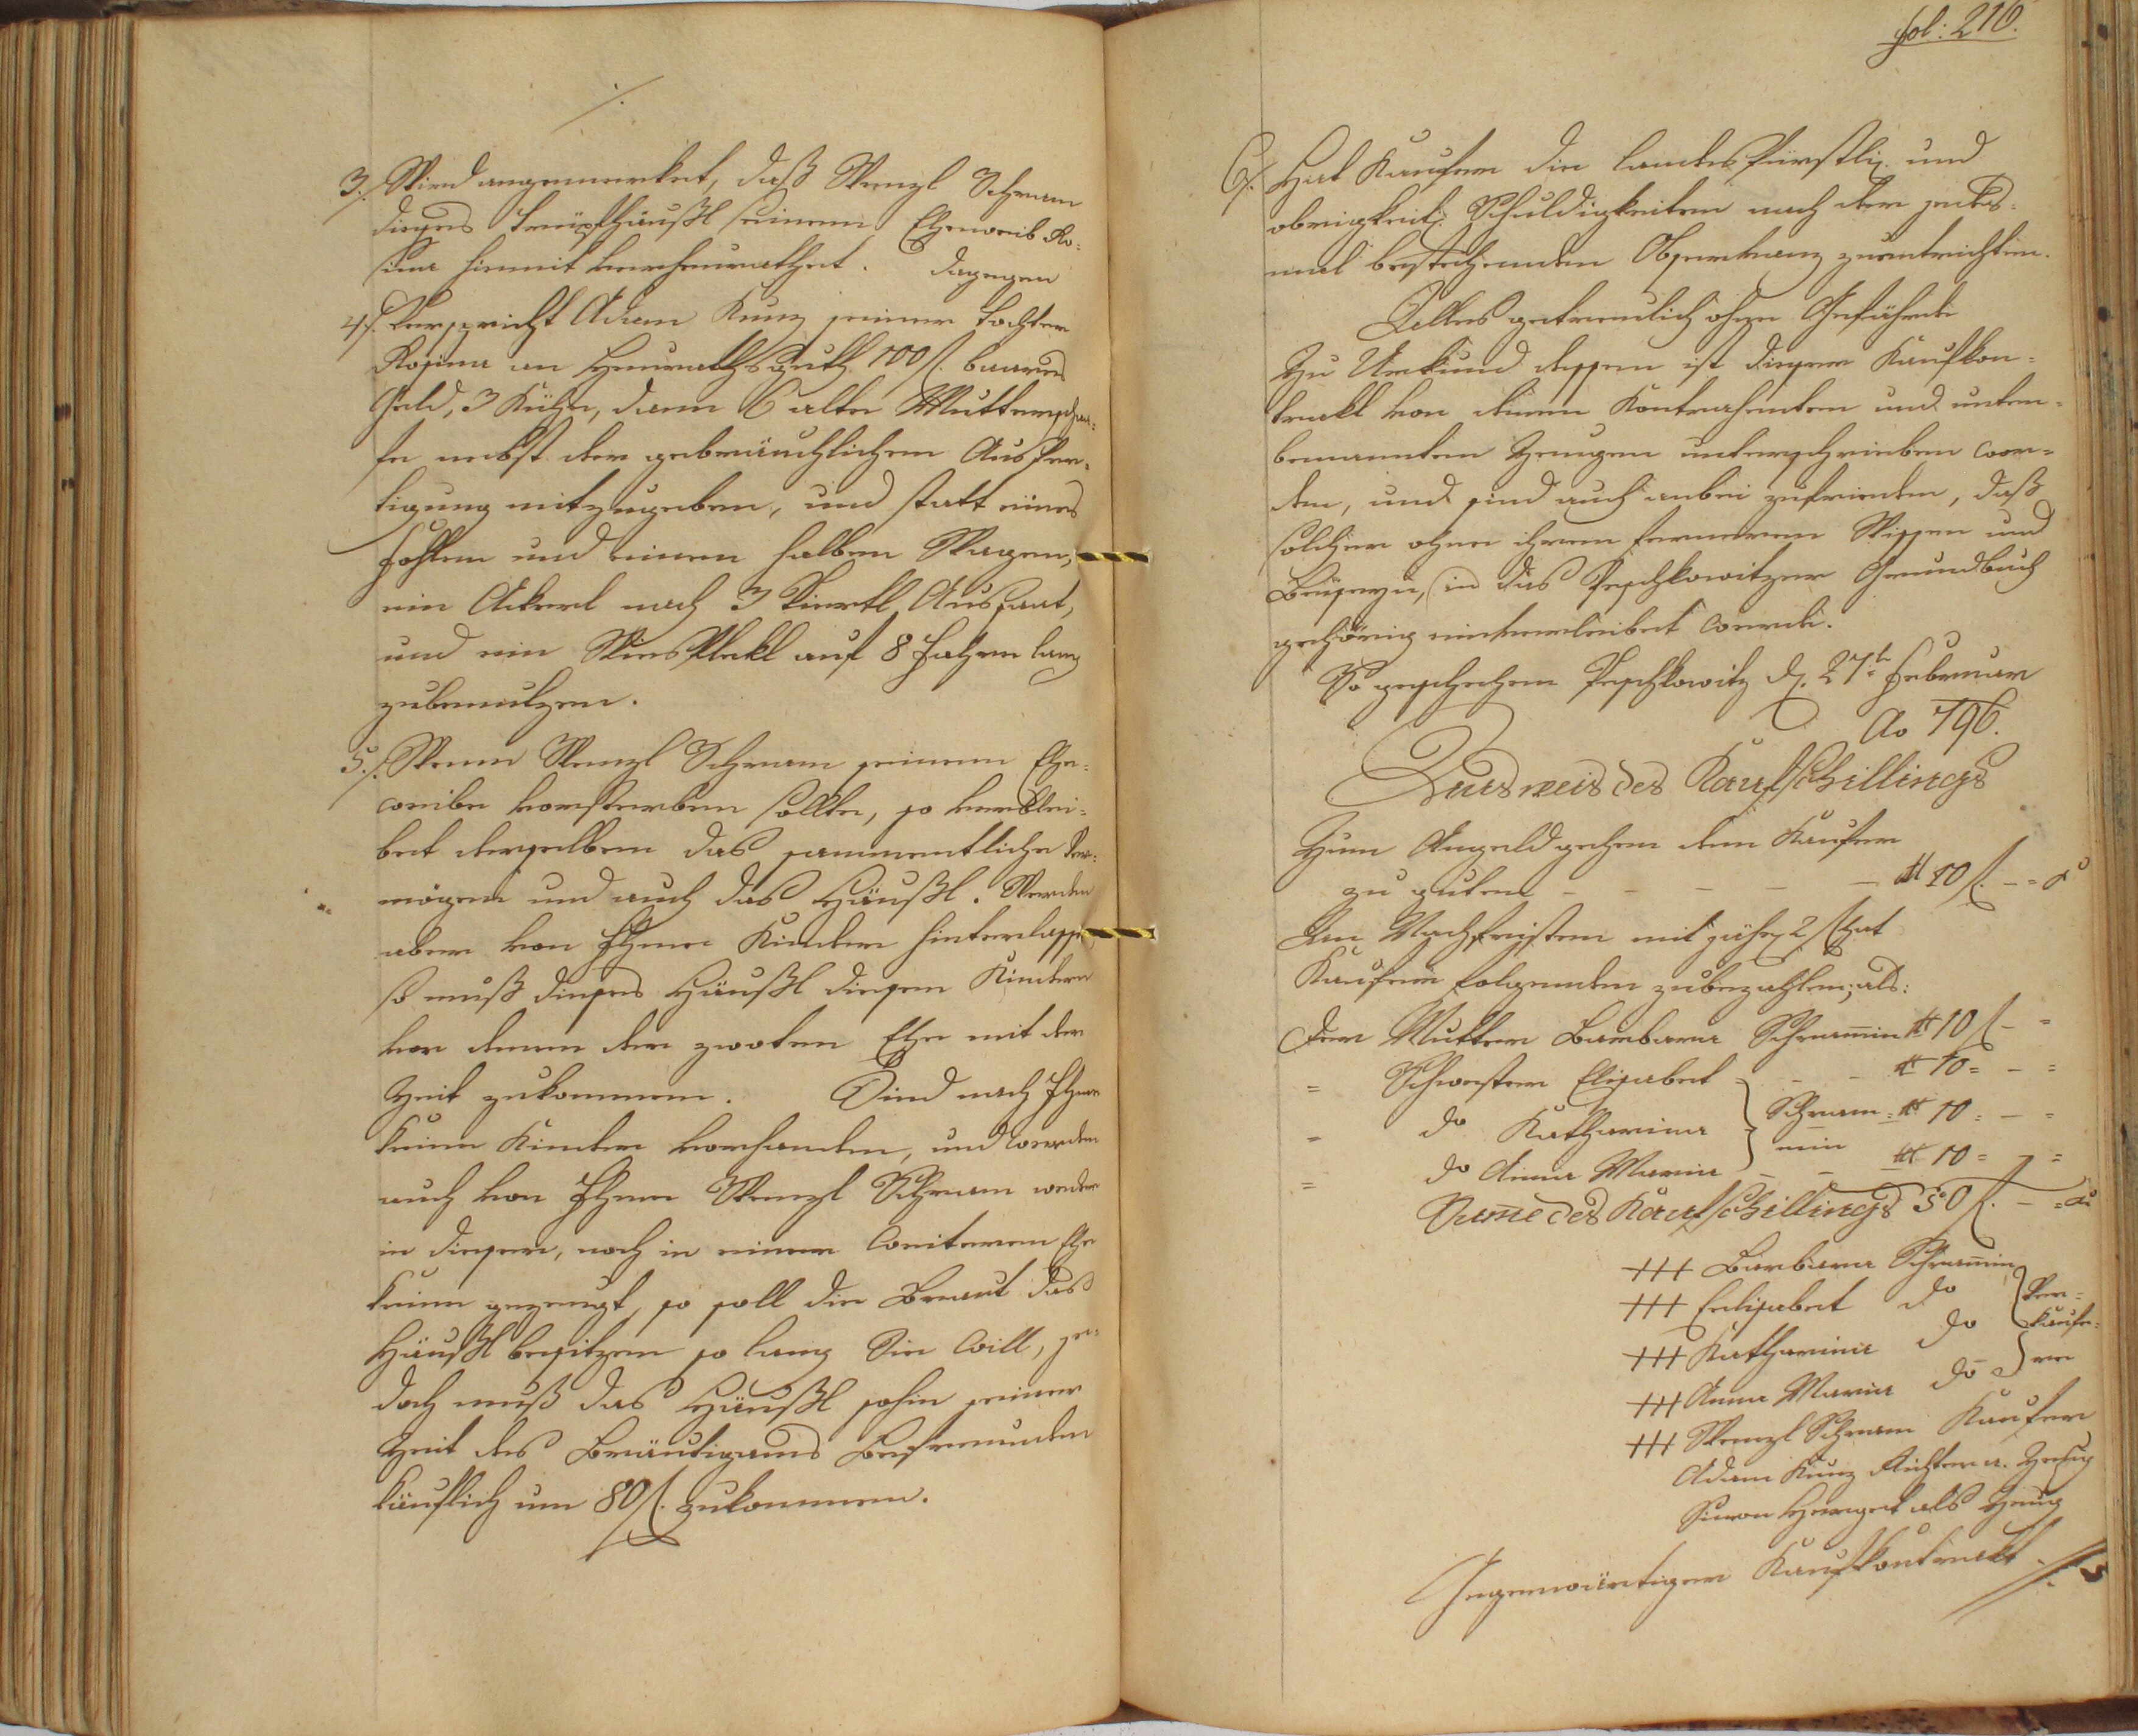 ./.
3./. Wird angemerket, daß Wenzl Schram
dieses Trüpfhäußl seinem Eheweib Ro=
sina hiemit verheurathet. Dagegen
4./. Verspricht Adam Kunz seiner Tochter
Rosina an Heurathsguth 100 f. baares
Geld, 3 Kühe, dann 6 alte Mutterscha=
fe nebst der gebräuchlichen Ausfer=
tigung mitzugeben, und statt eines
Fohlen und einen halben Wagen,
ein Ackerl nach 3 Viertl Aussaat,
und ein Wiesfleckl auf 8 Jahre lang
zubenutzen.
5./. Wenn Wenzl Schram seinem Ehe=
weibe vorsterben sollte, so verblei=
bet derselben das sammentliche Ver=
mögen und auch das Häußl. Werden
aber von Ihme Kinder hinterlassen
so muß dieses Häußl diesen Kindern
vor denen der zwoten Ehe mit der
Zeit zukommen. Sind nach Ihme
keine Kinder vorhanden, und werden
auch von Ihme Wenzl Schram weder
in dieser, noch in einer weiteren Ehe
keine gezeugt, so soll die Braut das
Häußl besitzen so lang Sie will, je=
doch muß das Häußl sohin seiner
Zeit des Bräutigams Befreunden
käuflich um 80 f. zukommen.
fol: 216.
6./. Hat Kaufer die landesfürstli. und
obrigkeitl. Schuldigkeiten nach der jedes=
mal bestehenden Observanz zuentrichten.
Alles getreulich ohne Gefährde
Zu Urkund dessen ist dieser Kaufkon=
trakt von denen Kontrahenten und unten=
benannten Zeugen unterschrieben wor=
den, und sind auch anbei zufrieden, daß
solcher ohne ihrem ferneren Wissen und
Beyseyn, in das Peschkowitzer Grundbuch
gehörig einverleibet werde.
So geschehen Peschkowitz d. 27t Februar
Ao 796.
Ausweis des Kaufschillings
Zum Angeld gehen dem Kaufer
zu guten - - - - - 10 f. - =
An Nachfristen mit jähr 2 f hat
Kaufer folgenden zubezahlen, als:
Der Mutter Barbara Schramin 10 f - =
= Schwester Elisabet - - 10 = - =
= do Katharina } Schram= 10 = - =
= do Anna Maria } min - - 10 = - =
Summe des Kaufschillings 50 f. - =
+++ Barbara Schramin
+++ Enlisabet do } Ver=
+++ Katharina do } kaufe=
+++ Anna Maria do } re
+++ Wenzl Schram Kaufer
Adam Kunz Richter u. Zeug
Simon Herget als Zeug
Gegenwärtiger Kaufkontrakt ./.